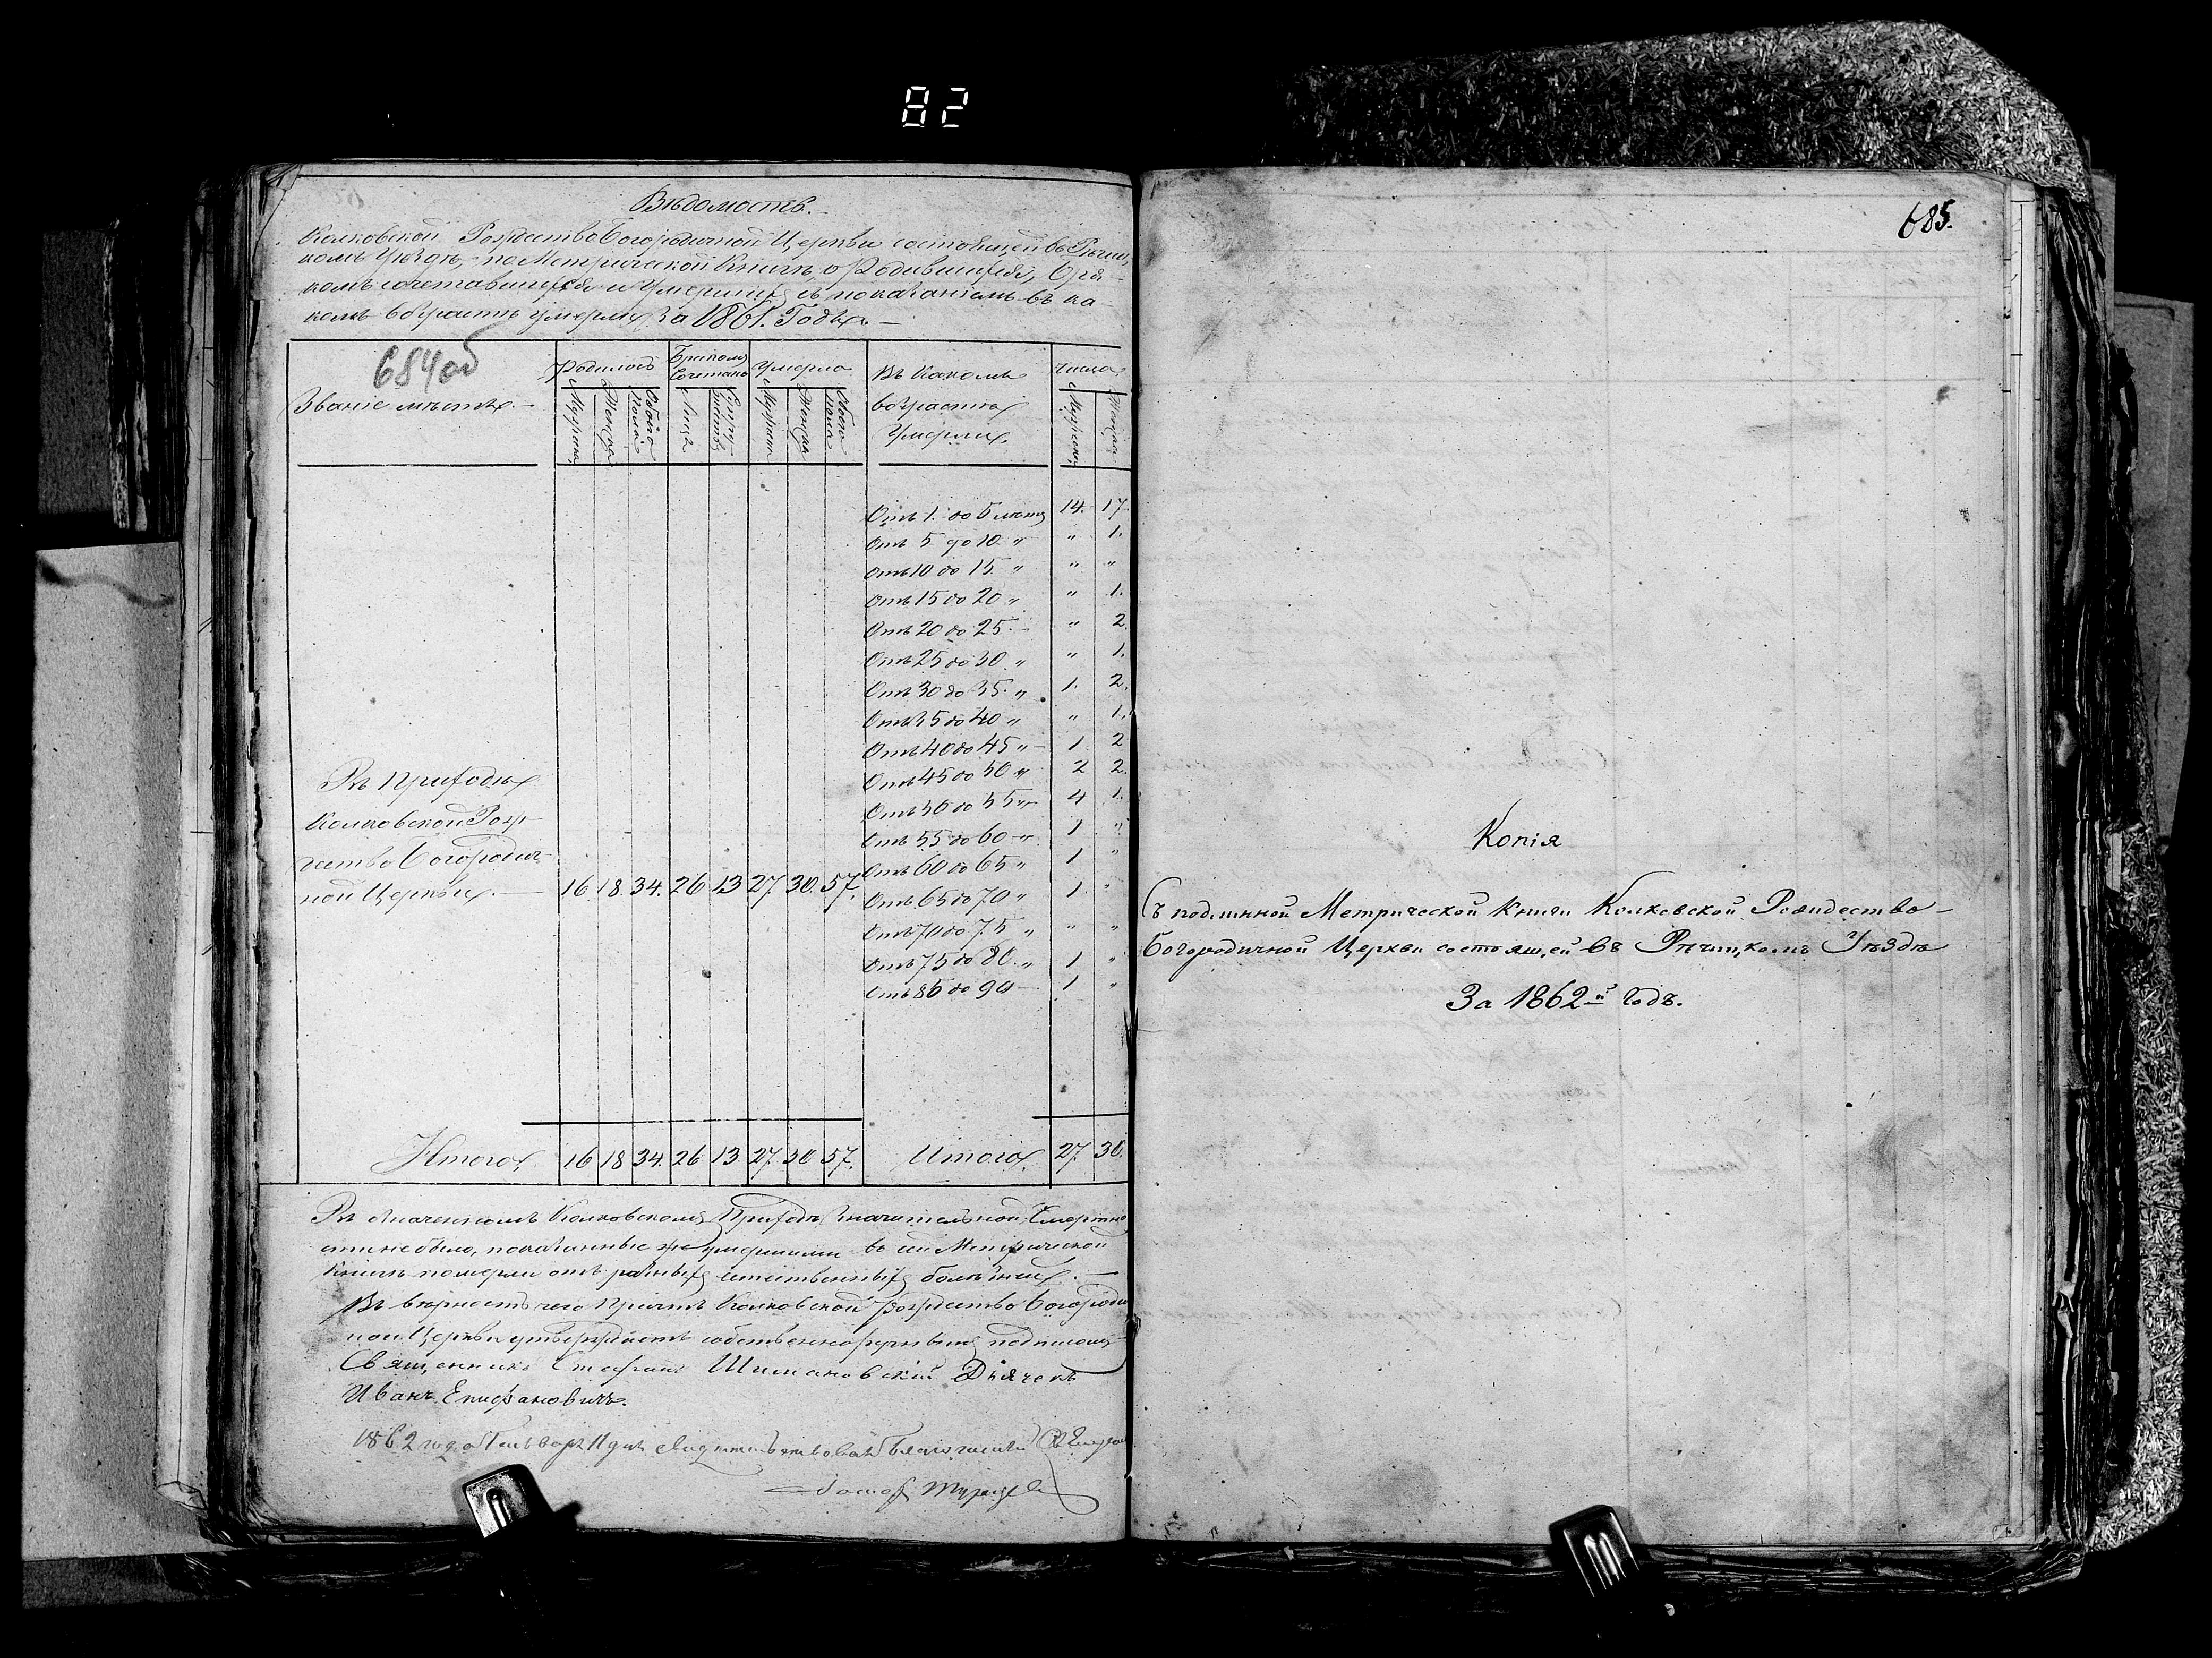 82
Вѣдомость.
Колковской Рождество Богородичной Церкви состоящей въ Рѣчиц-
комъ Уѣздѣ, по Метрической Книгѣ, о Родившихся, Бра-
комъ сочетавшихся и Умершихъ съ показаніемъ въ ка-
комъ возрастѣ умерли, за 1861. Годъ.
684об
Званіе мѣстъ.
Родилось
Бракомъ Сочетано
Умерло
Въ Какомъ возрастѣ Умерли.
Число
Мужска
Женска
Обоего Пола
Лицъ
Супружествъ
Мужска
Женска
Обоего пола
Мужска
Женска
Отъ 1. до 5 лѣтъ 14. 17.
Отъ 5 до 10 " " 1.
Отъ 10 до 15 " " "
Отъ 15 до 20 " " 1.
Отъ 20 до 25 - " 2.
Отъ 25 до 30 " " 1.
Отъ 30 до 35 " 1. 2.
Отъ 35 до 40 " " 1.
Отъ 40 до 45 " 1 2
Отъ 45 до 50 " 2 2.
Отъ 50 до 55 " 4 1.
Отъ 55 до 60 " 1 "
Отъ 60 до 65 " 1 "
Отъ 65 до 70 " 1 "
Отъ 70 до 75 " " "
Отъ 75 до 80 " 1 "
Отъ 85 до 90 - 1 "
Въ Приходѣ
Колковской Рож-
дество Богородич-
ной Церкви. 16 18. 34. 26 13 27 30. 57.
Итого 16 18 34. 26 13. 27. 30 57. Итого. 27. 30.
Въ означенномъ Колковскомъ Приходѣ значительной Смертно
сти не было, показанные же умершими въ сей Метрической
Книгѣ померли отъ разныхъ естественныхъ болѣзней.
Въ вѣрность чего Причтъ Колковской Рождество Богороди
ной Церкви утверждаетъ собственноручнымъ подписомъ
Священникъ Стефанъ Шимановскій Дьячекъ
Иванъ Епифановичъ.
1862 года Генваря 11 дня свидѣтельствовалъ Благочинный
685.
Копія
Съ подлинной Метрической Книги Колковской Рождество-
Богородичной Церкви состоящей въ Рѣчицкомъ Уѣздѣ
За 1862й Годъ.